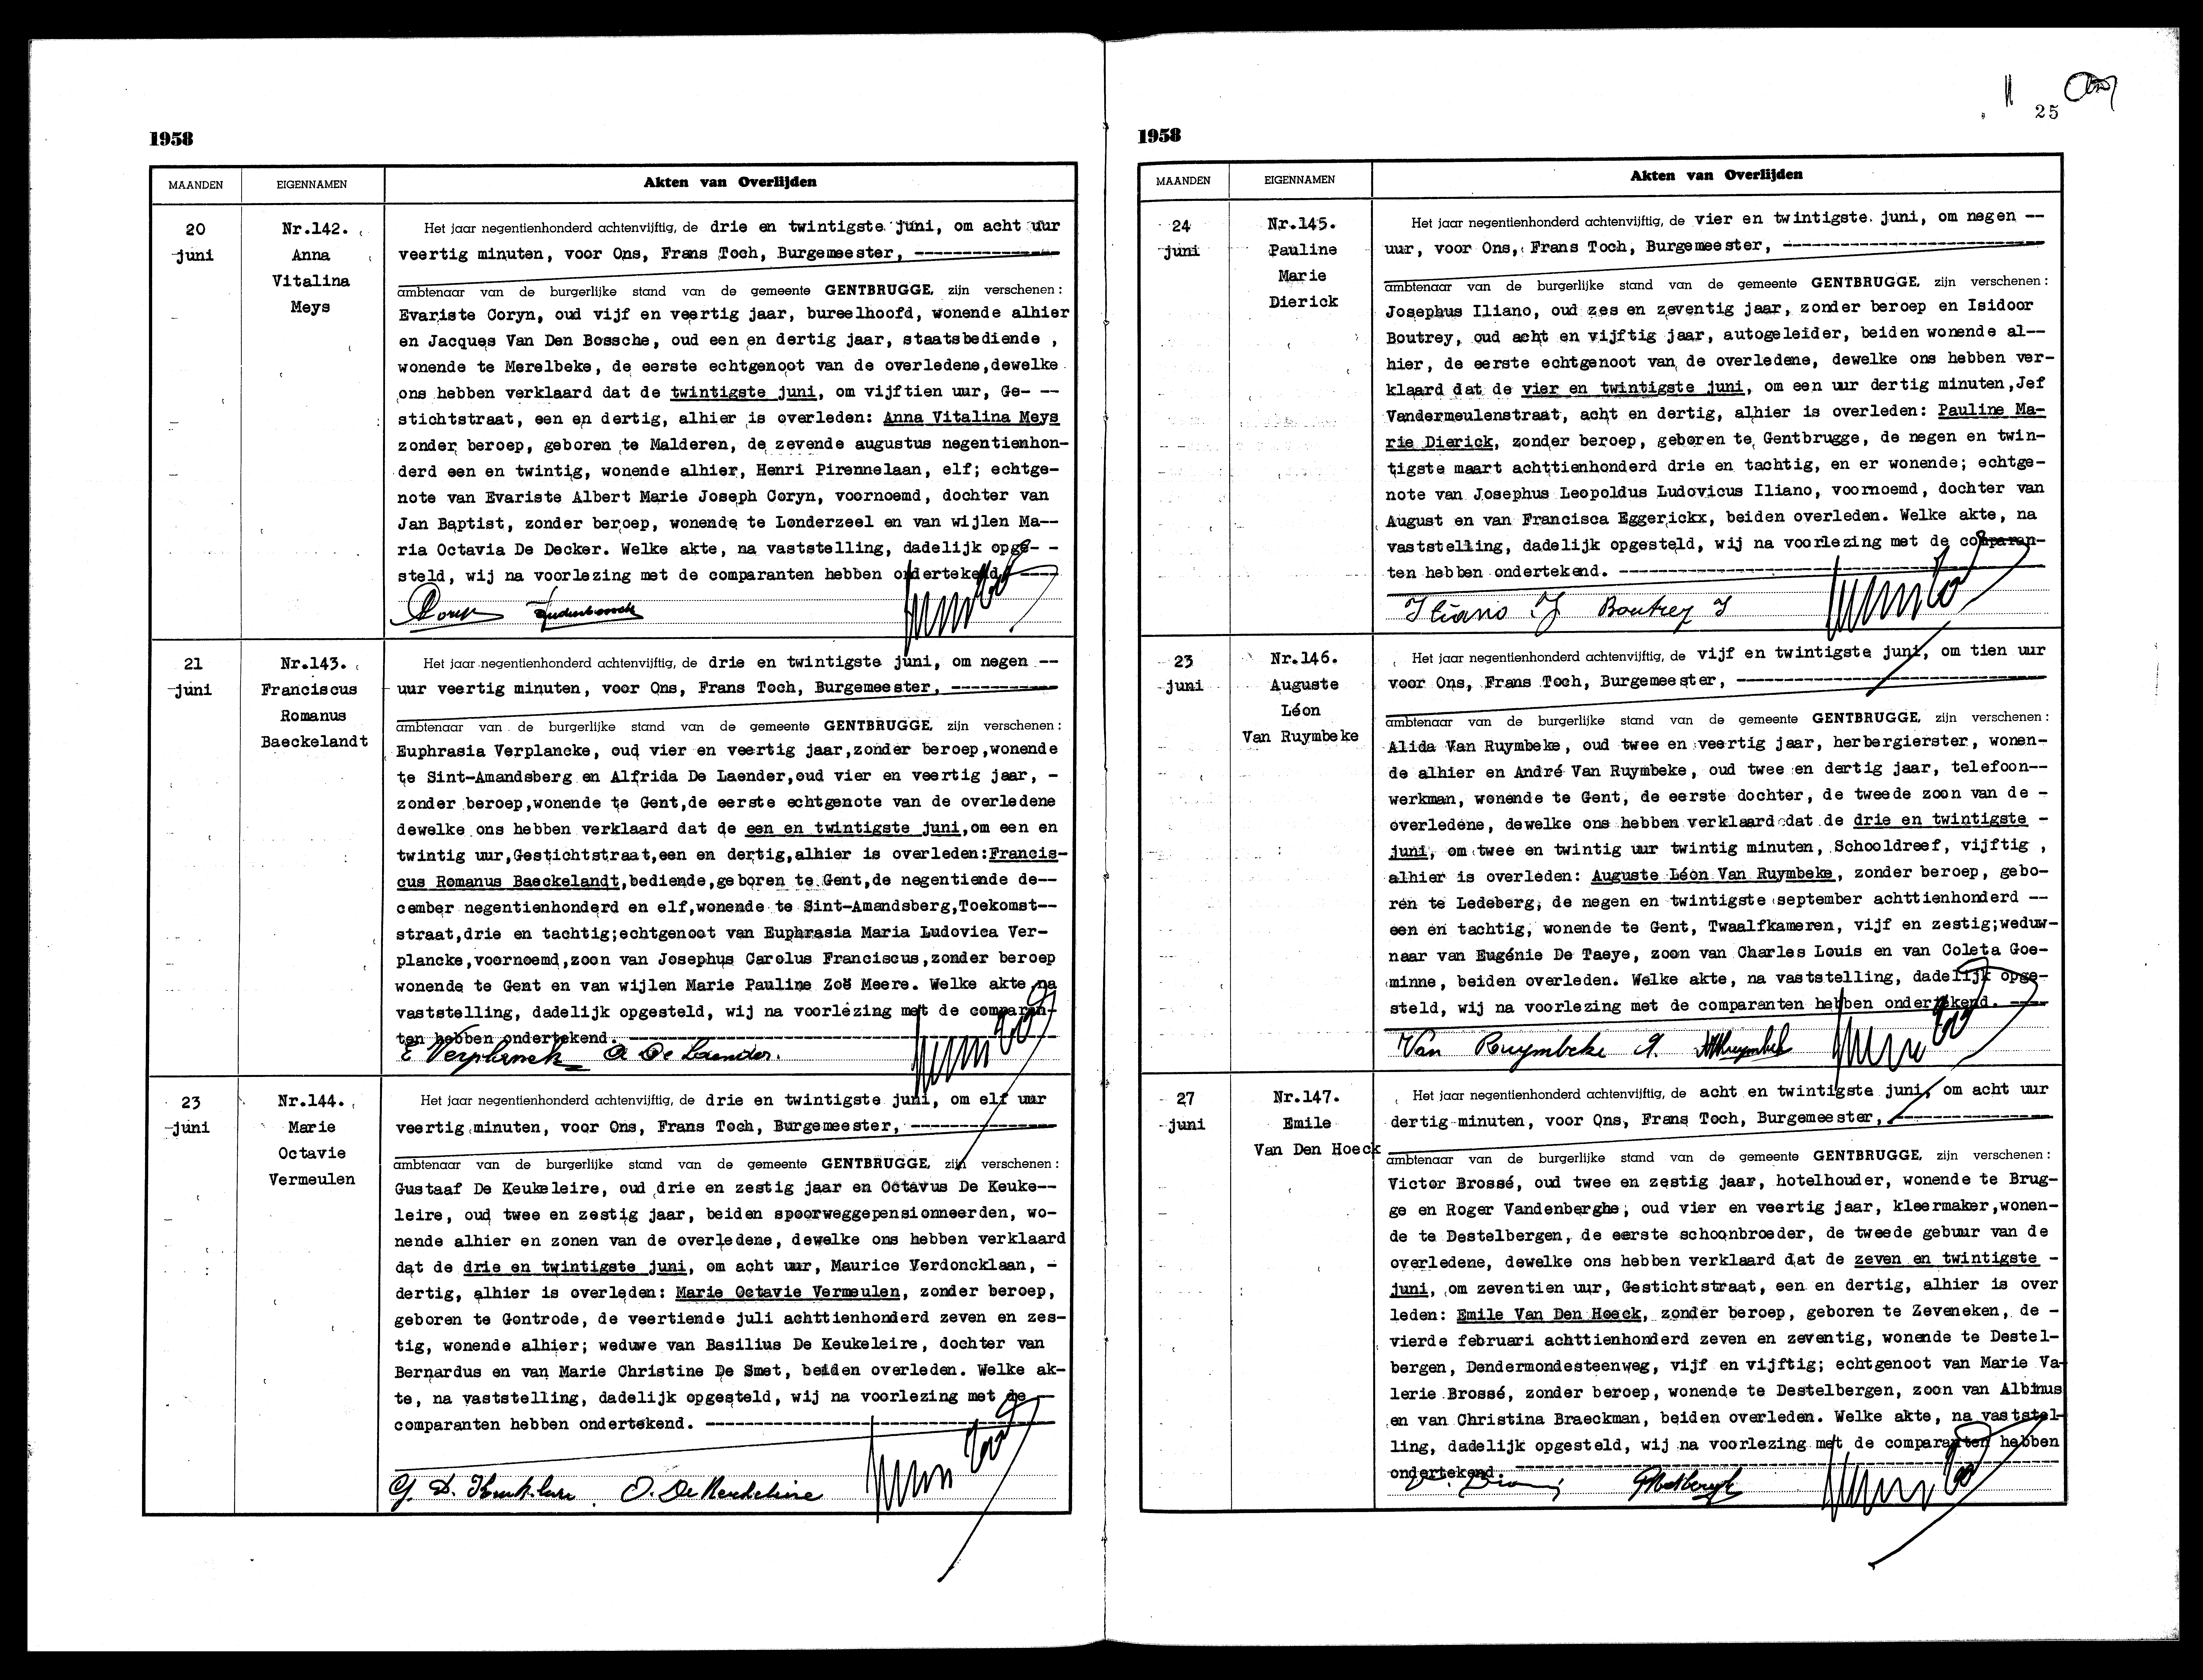 1958
MAANDEN
EIGENNAMEN
Akten van Overlijden
20
juni
Nr.142.
Anna
Vitalina
Meys
Het jaar negentienhonderd achtenvijftig, de drie en twintigste juni, om acht uur
veertig minuten, voor Ons, Frans Toch, Burgemeester, ----------------
ambtenaar van de burgerlijke stand van de gemeente GENTBRUGGE, zijn verschenen:
Evariste Coryn, oud vijf en veertig jaar, bureelhoofd, wonende alhier
en Jacques Van Den Bossche, oud een en dertig jaar, staatsbediende ,
wonende te Merelbeke, de eerste echtgenoot van de overledene,dewelke
ons hebben verklaard dat de twintigste juni, om vijftien uur, Ge- --
stichtstraat, een en dertig, alhier is overleden: Anna Vitalina Meys
zonder beroep, geboren te Malderen, de zevende augustus negentienhon-
derd een en twintig, wonende alhier, Henri Pirennelaan, elf; echtge-
note van Evariste Albert Marie Joseph Coryn, voornoemd, dochter van
Jan Baptist, zonder beroep, wonende te Londerzeel en van wijlen Ma--
ria Octavia De Decker. Welke akte, na vaststelling, dadelijk opge- -
steld, wij na voorlezing met de comparanten hebben ondertekend. ----
Coryn
21
juni
Nr.143.
Franciscus
Romanus
Baeckelandt
Het jaar negentienhonderd achtenvijftig, de drie en twintigste juni, om negen --
uur veertig minuten, voor Ons, Frans Toch, Burgemeester, -----------
ambtenaar van de burgerlijke stand van de gemeente GENTBRUGGE, zijn verschenen:
Euphrasia Verplancke, oud vier en veertig jaar,zonder beroep,wonende
te Sint-Amandsberg en Alfrida De Laender,oud vier en veertig jaar, -
zonder beroep,wonende te Gent,de eerste echtgenote van de overledene
dewelke ons hebben verklaard dat de een en twintigste juni,om een en
twintig uur,Gestichtstraat,een en dertig,alhier is overleden:Francis-
cus Romanus Baeckelandt,bediende,geboren te Gent,de negentiende de--
cember negentienhonderd en elf,wonende te Sint-Amandsberg,Toekomst--
straat,drie en tachtig;echtgenoot van Euphrasia Maria Ludovica Ver-
plancke,voornoemd,zoon van Josephus Carolus Franciscus,zonder beroep
wonende te Gent en van wijlen Marie Pauline Zoë Meere. Welke akte na
vaststelling, dadelijk opgesteld, wij na voorlezing met de comparan-
ten hebben ondertekend. ----------------
E Verplancke A De Laender.
23
juni
Nr.144.
Marie
Octavie
Vermeulen
Het jaar negentienhonderd achtenvijftig, de drie en twintigste juni, om elf uur
veertig minuten, voor Ons, Frans Toch, Burgemeester, ----------------
ambtenaar van de burgerlijke stand van de gemeente GENTBRUGGE, zijn verschenen:
Gustaaf De Keukeleire, oud drie en zestig jaar en Octavus De Keuke--
leire, oud twee en zestig jaar, beiden spoorweggepensionneerden, wo-
nende alhier en zonen van de overledene, dewelke ons hebben verklaard
dat de drie en twintigste juni, om acht uur, Maurice Verdoncklaan, -
dertig, alhier is overleden: Marie Octavie Vermeulen, zonder beroep,
geboren te Gontrode, de veertiende juli achttienhonderd zeven en zes-
tig, wonende alhier; weduwe van Basilius De Keukeleire, dochter van
Bernardus en van Marie Christine De Smet, beiden overleden. Welke ak-
te, na vaststelling, dadelijk opgesteld, wij na voorlezing met de --
comparanten hebben ondertekend. ----------------
G. D. Keukeleire. O. De Keukeleire
25
1958
MAANDEN
EIGENNAMEN
Akten van Overlijden
24
juni
Nr.145.
Pauline
Marie
Dierick
Het jaar negentienhonderd achtenvijftig, de vier en twintigste juni, om negen --
uur, voor Ons, Frans Toch, Burgemeester, ----------------
ambtenaar van de burgerlijke stand van de gemeente GENTBRUGGE, zijn verschenen:
Josephus Iliano, oud zes en zeventig jaar, zonder beroep en Isidoor
Boutrey, oud acht en vijftig jaar, autogeleider, beiden wonende al--
hier, de eerste echtgenoot van de overledene, dewelke ons hebben ver-
klaard dat de vier en twintigste juni, om een uur dertig minuten,Jef
Vandermeulenstraat, acht en dertig, alhier is overleden: Pauline Ma-
rie Dierick, zonder beroep, geboren te Gentbrugge, de negen en twin-
tigste maart achttienhonderd drie en tachtig, en er wonende; echtge-
note van Josephus Leopoldus Ludovicus Iliano, voornoemd, dochter van
August en van Francisca Eggerickx, beiden overleden. Welke akte, na
vaststelling, dadelijk opgesteld, wij na voorlezing met de comparan-
ten hebben ondertekend. ----------------
Iliano J Boutrey I
23
juni
Nr.146.
Auguste
Léon
Van Ruymbeke
Het jaar negentienhonderd achtenvijftig, de vijf en twintigste juni, om tien uur
voor Ons, Frans Toch, Burgemeester, ----------------
ambtenaar van de burgerlijke stand van de gemeente GENTBRUGGE, zijn verschenen:
Alida Van Ruymbeke, oud twee en veertig jaar, herbergierster, wonen-
de alhier en André Van Ruymbeke, oud twee en dertig jaar, telefoon--
werkman, wonende te Gent, de eerste dochter, de tweede zoon van de -
overledene, dewelke ons hebben verklaard dat de drie en twintigste -
juni, om twee en twintig uur twintig minuten, Schooldreef, vijftig ,
alhier is overleden: Auguste Léon Van Ruymbeke, zonder beroep, gebo-
ren te Ledeberg, de negen en twintigste september achttienhonderd --
een en tachtig, wonende te Gent, Twaalfkameren, vijf en zestig;weduw-
naar van Eugénie De Taeye, zoon van Charles Louis en van Coleta Goe-
minne, beiden overleden. Welke akte, na vaststelling, dadelijk opge-
steld, wij na voorlezing met de comparanten hebben ondertekend. ----
Van Ruymbeke A.
27
juni
Nr.147.
Emile
Van Den Hoeck
Het jaar negentienhonderd achtenvijftig, de acht en twintigste juni, om acht uur
dertig minuten, voor Ons, Frans Toch, Burgemeester, ----------------
ambtenaar van de burgerlijke stand van de gemeente GENTBRUGGE, zijn verschenen:
Victor Brossé, oud twee en zestig jaar, hotelhouder, wonende te Brug-
ge en Roger Vandenberghe, oud vier en veertig jaar, kleermaker,wonen-
de te Destelbergen, de eerste schoonbroeder, de tweede gebuur van de
overledene, dewelke ons hebben verklaard dat de zeven en twintigste -
juni, om zeventien uur, Gestichtstraat, een en dertig, alhier is over
leden: Emile Van Den Hoeck, zonder beroep, geboren te Zeveneken, de -
vierde februari achttienhonderd zeven en zeventig, wonende te Destel-
bergen, Dendermondesteenweg, vijf en vijftig; echtgenoot van Marie Va-
lerie Brossé, zonder beroep, wonende te Destelbergen, zoon van Albinus
en van Christina Braeckman, beiden overleden. Welke akte, na vaststel-
ling, dadelijk opgesteld, wij na voorlezing met de comparanten hebben
ondertekend. ----------------